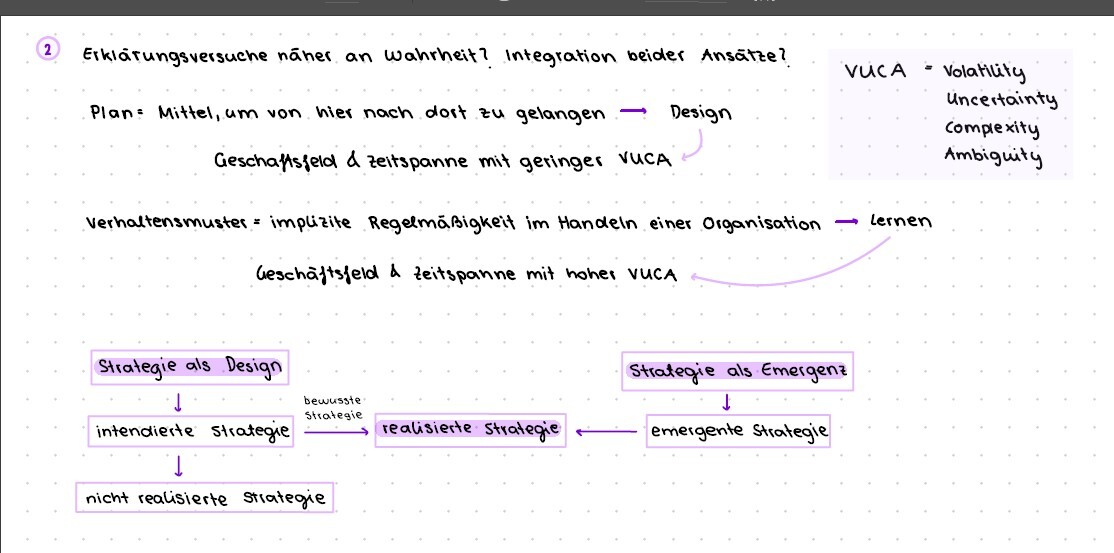 2 Erklärungsversuche näher an Wahrheit? Integration beider Ansätze?
VUCA = Volatility
Uncertainty
Complexity
Ambiguity
Plan = Mittel, um von hier nach dort zu gelangen → Design
Geschäftsfeld & Zeitspanne mit geringer VUCA
Verhaltensmuster = implizite Regelmäßigkeit im Handeln einer Organisation → Lernen
Geschäftsfeld & Zeitspanne mit hoher VUCA
Strategie als Design
Strategie als Emergenz
bewusste
Strategie
intendierte Strategie
realisierte Strategie
emergente Strategie
nicht realisierte Strategie